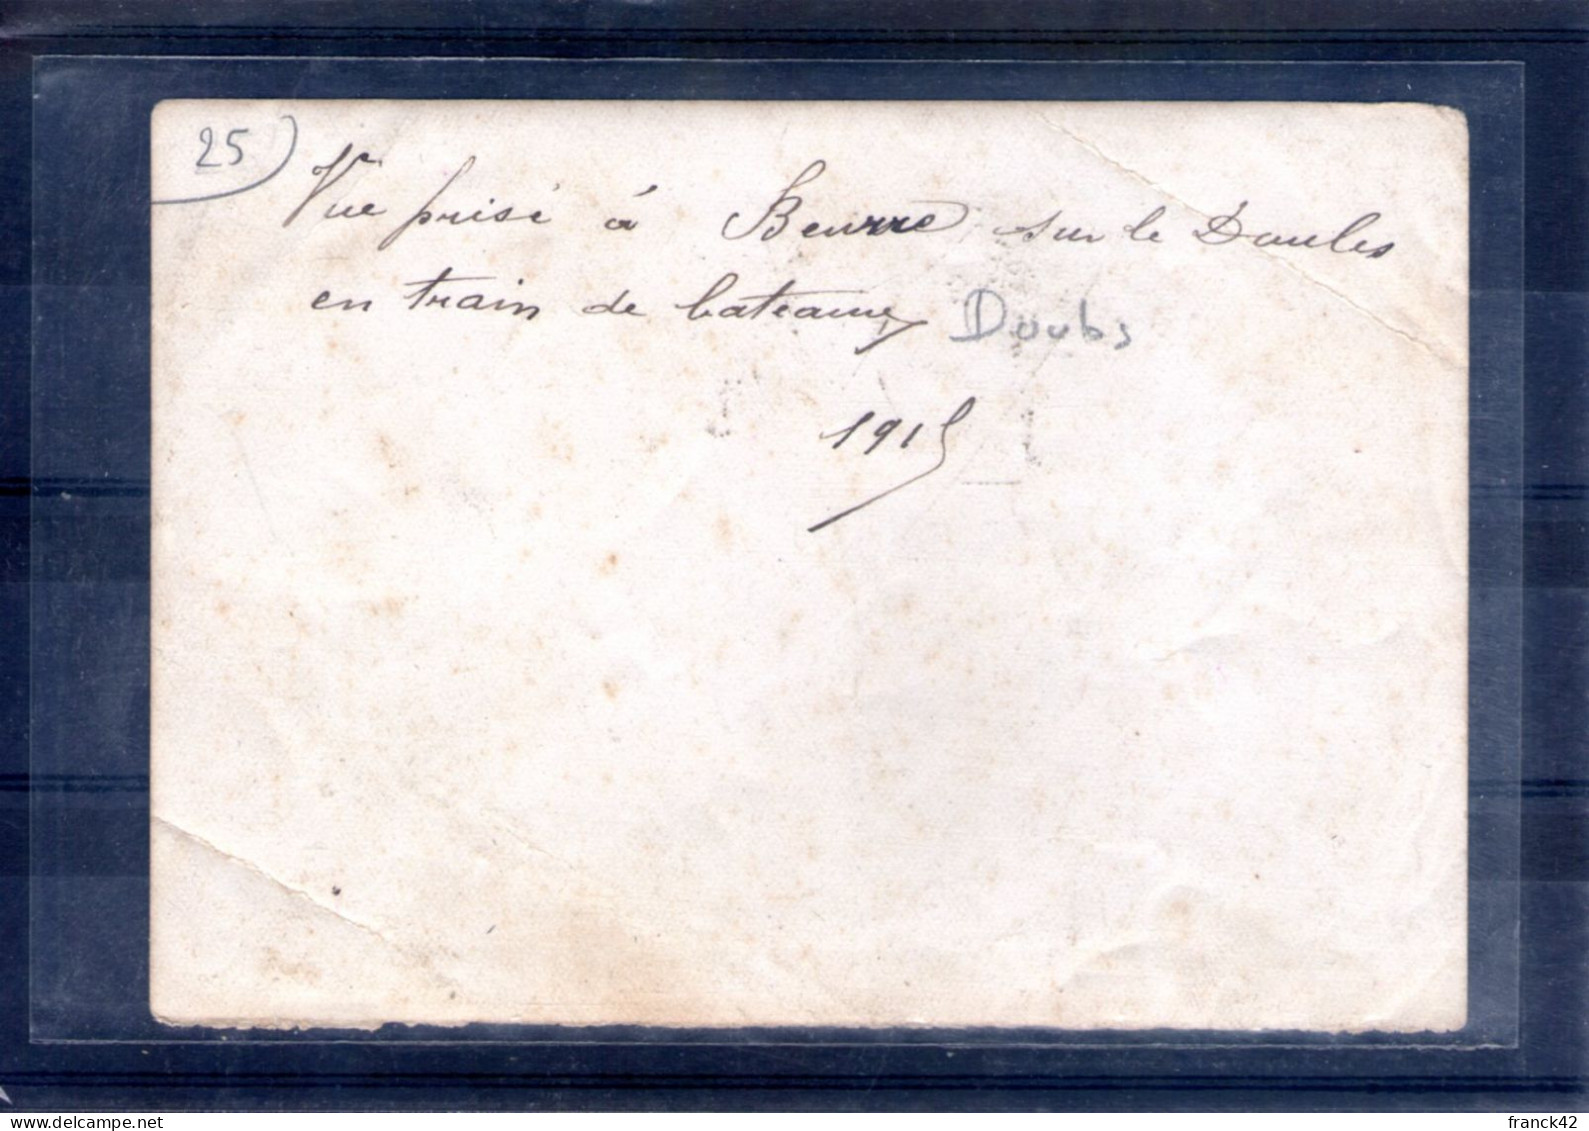 25)
Vue prise à Beurre sur le Doubs
en train de bateaux Doubs
1915
franck42